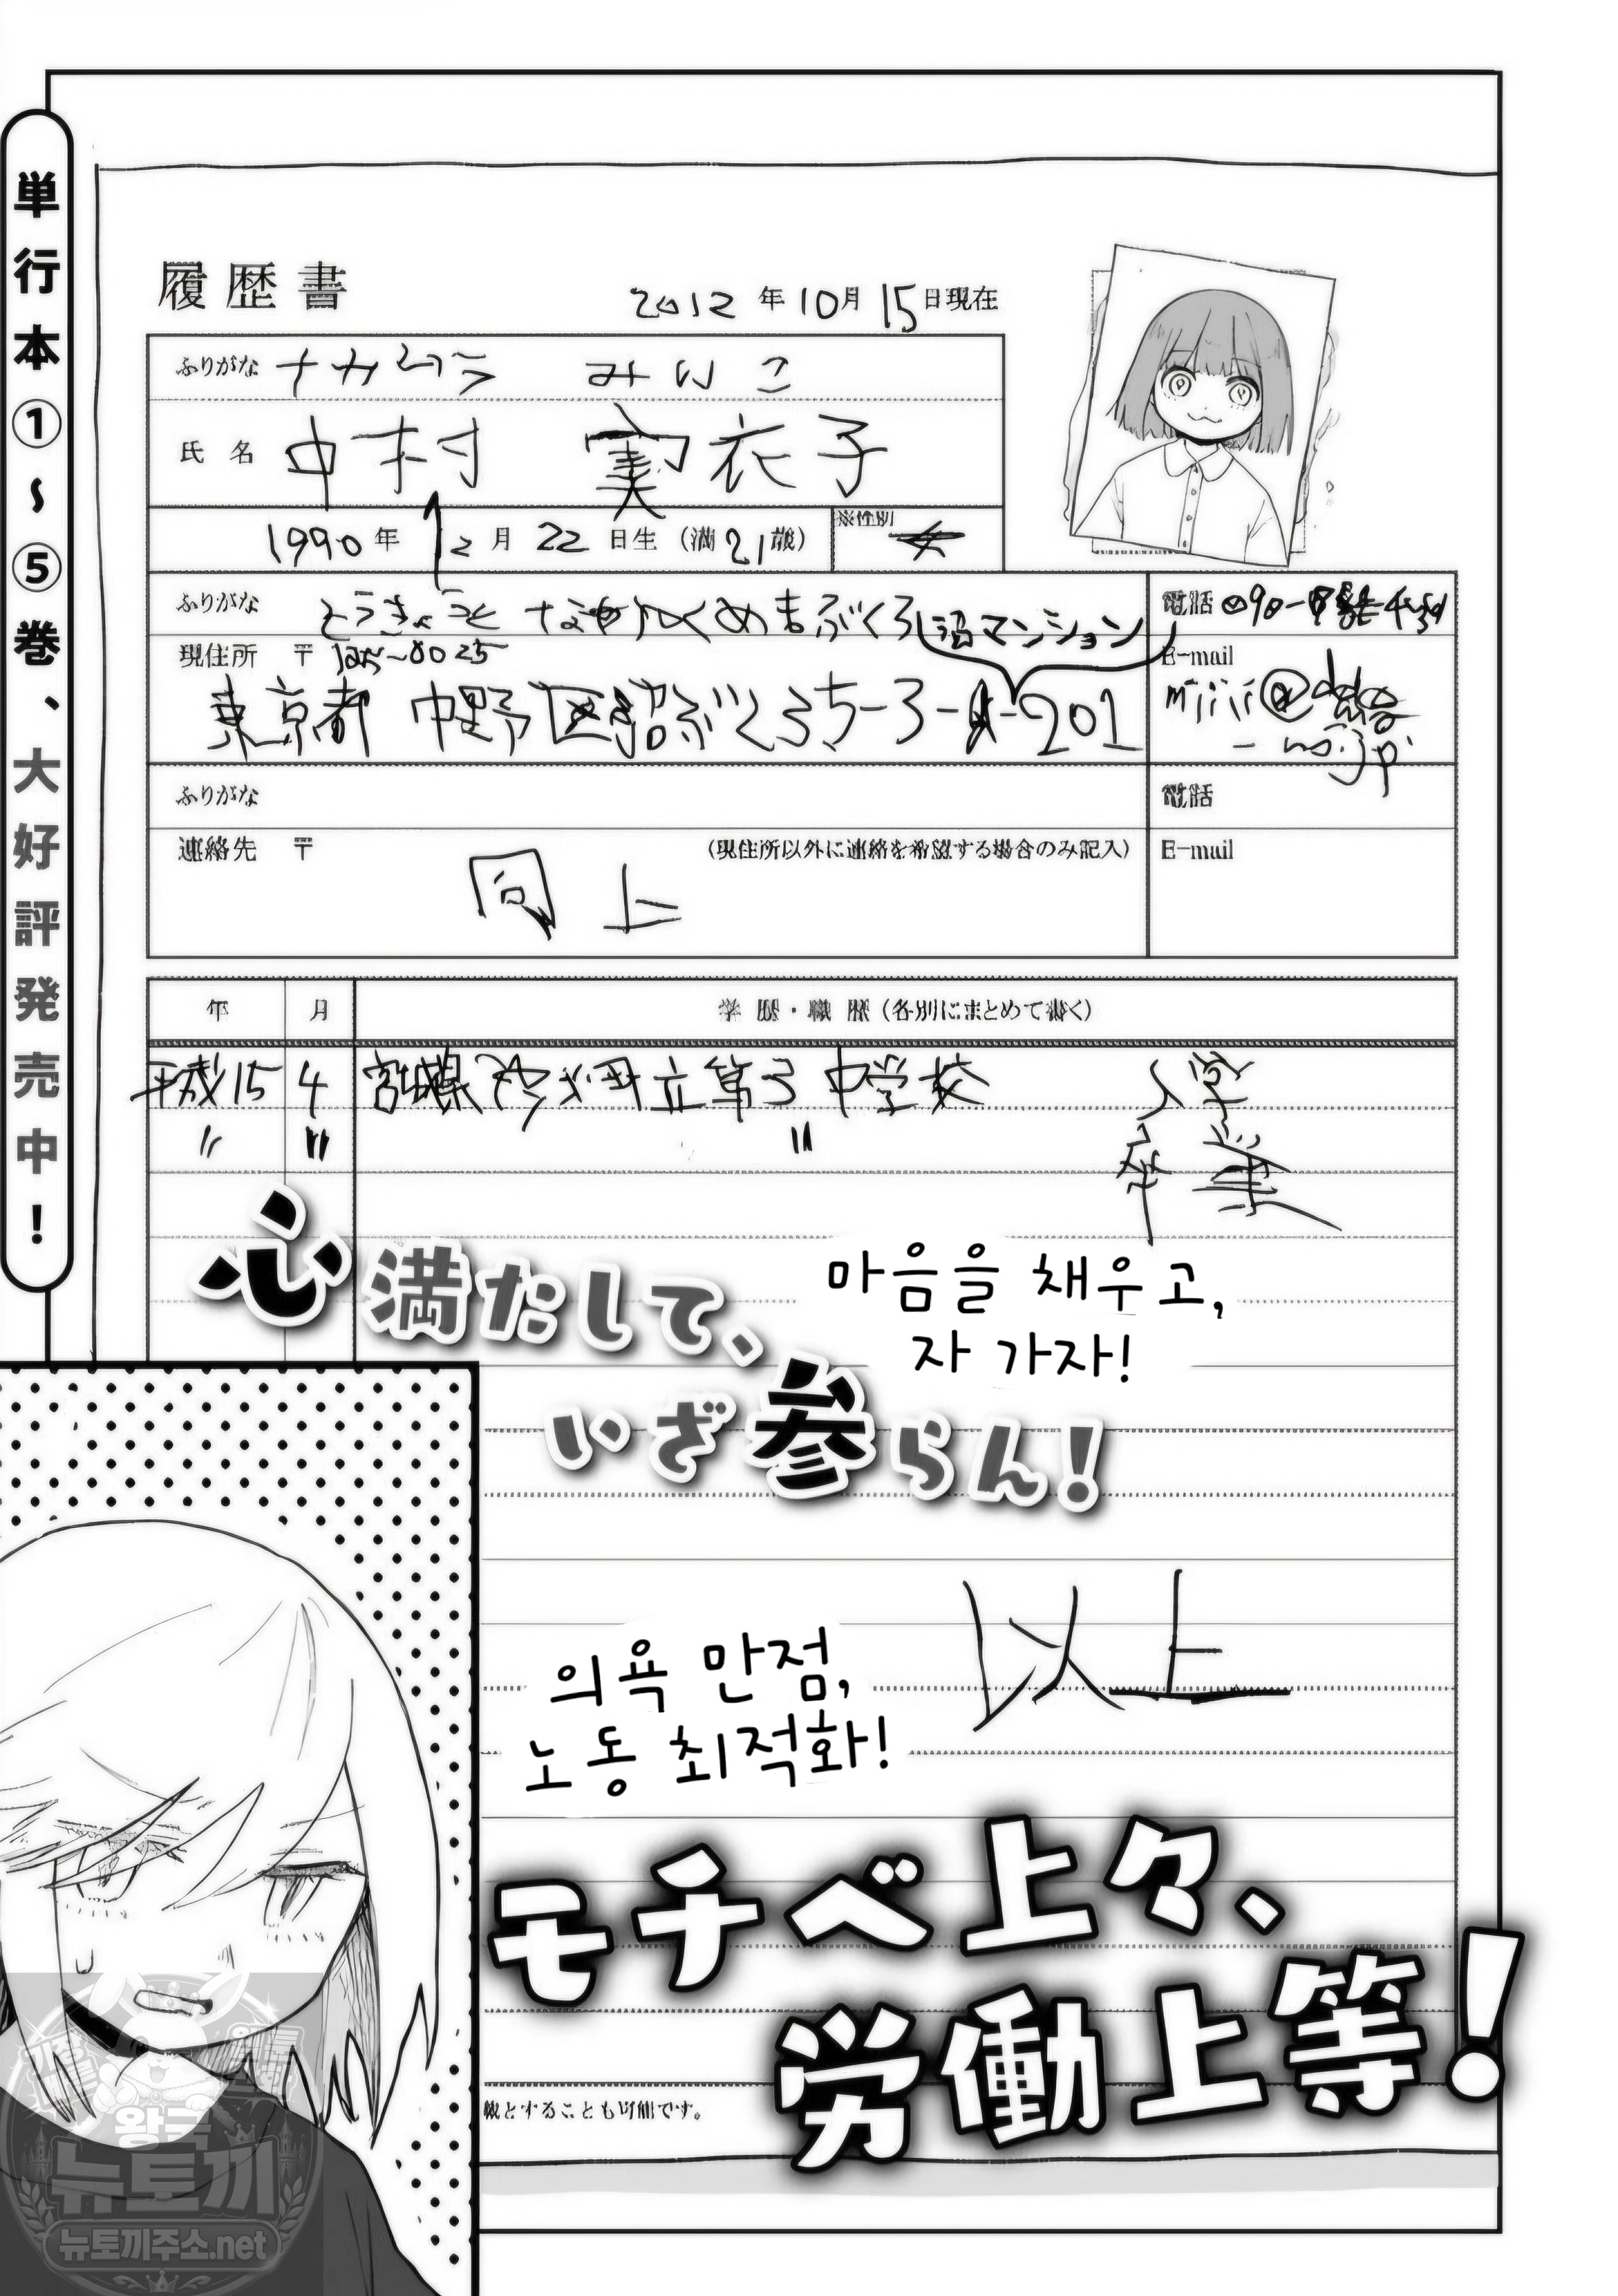 単行本①~⑤巻、大好評発売中!
履歴書
2012年10月15日現在
ふりがな ナカムラ みいこ
氏名 中村 実衣子
1990年12月22日生(満21歳)
※性別 女
ふりがな とうきょうと なかのくぬまぶくろ
沼マンション
電話
現住所 〒
東京都 中野区沼ぶくろ5-3-
201
E-mail
ふりがな
電話
連絡先 〒 (現住所以外に連絡を希望する場合のみ記入)
E-mail
同上
年 月 学歴・職歴(各別にまとめて書く)
平成15 4 宮城県 立第3中学校 入学
〃 〃 〃 卒業
心満たして、
いざ参らん!
마음을 채우고,
자 가자!
以上
의욕 만점,
노동 최적화!
モチベ上々、
労働上等!
とすることも可能です。
왕국
뉴토끼
뉴토끼주소.net